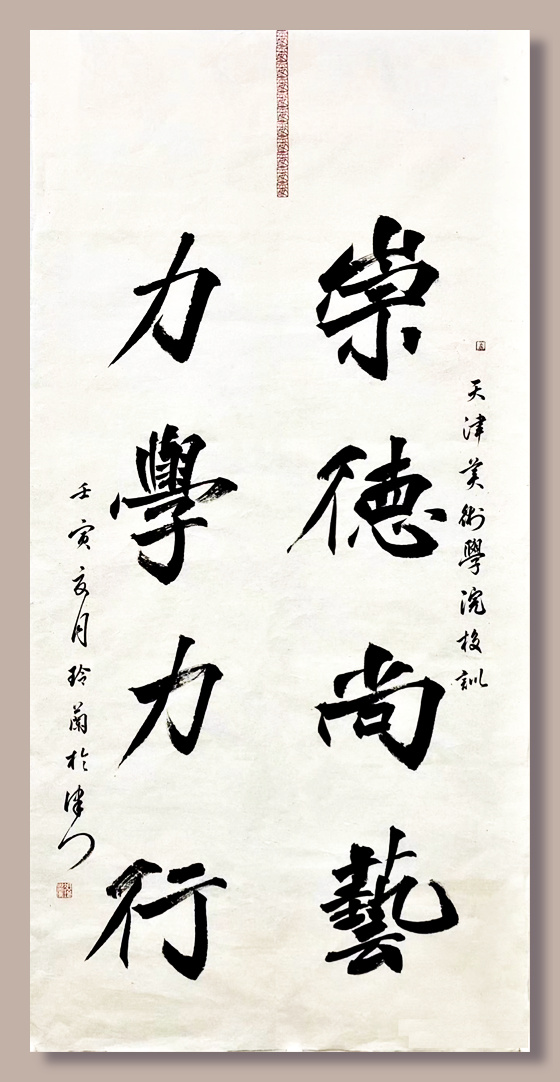 天津美術學院校訓
崇德尚藝
力學力行
壬寅亥月玲蘭於津门